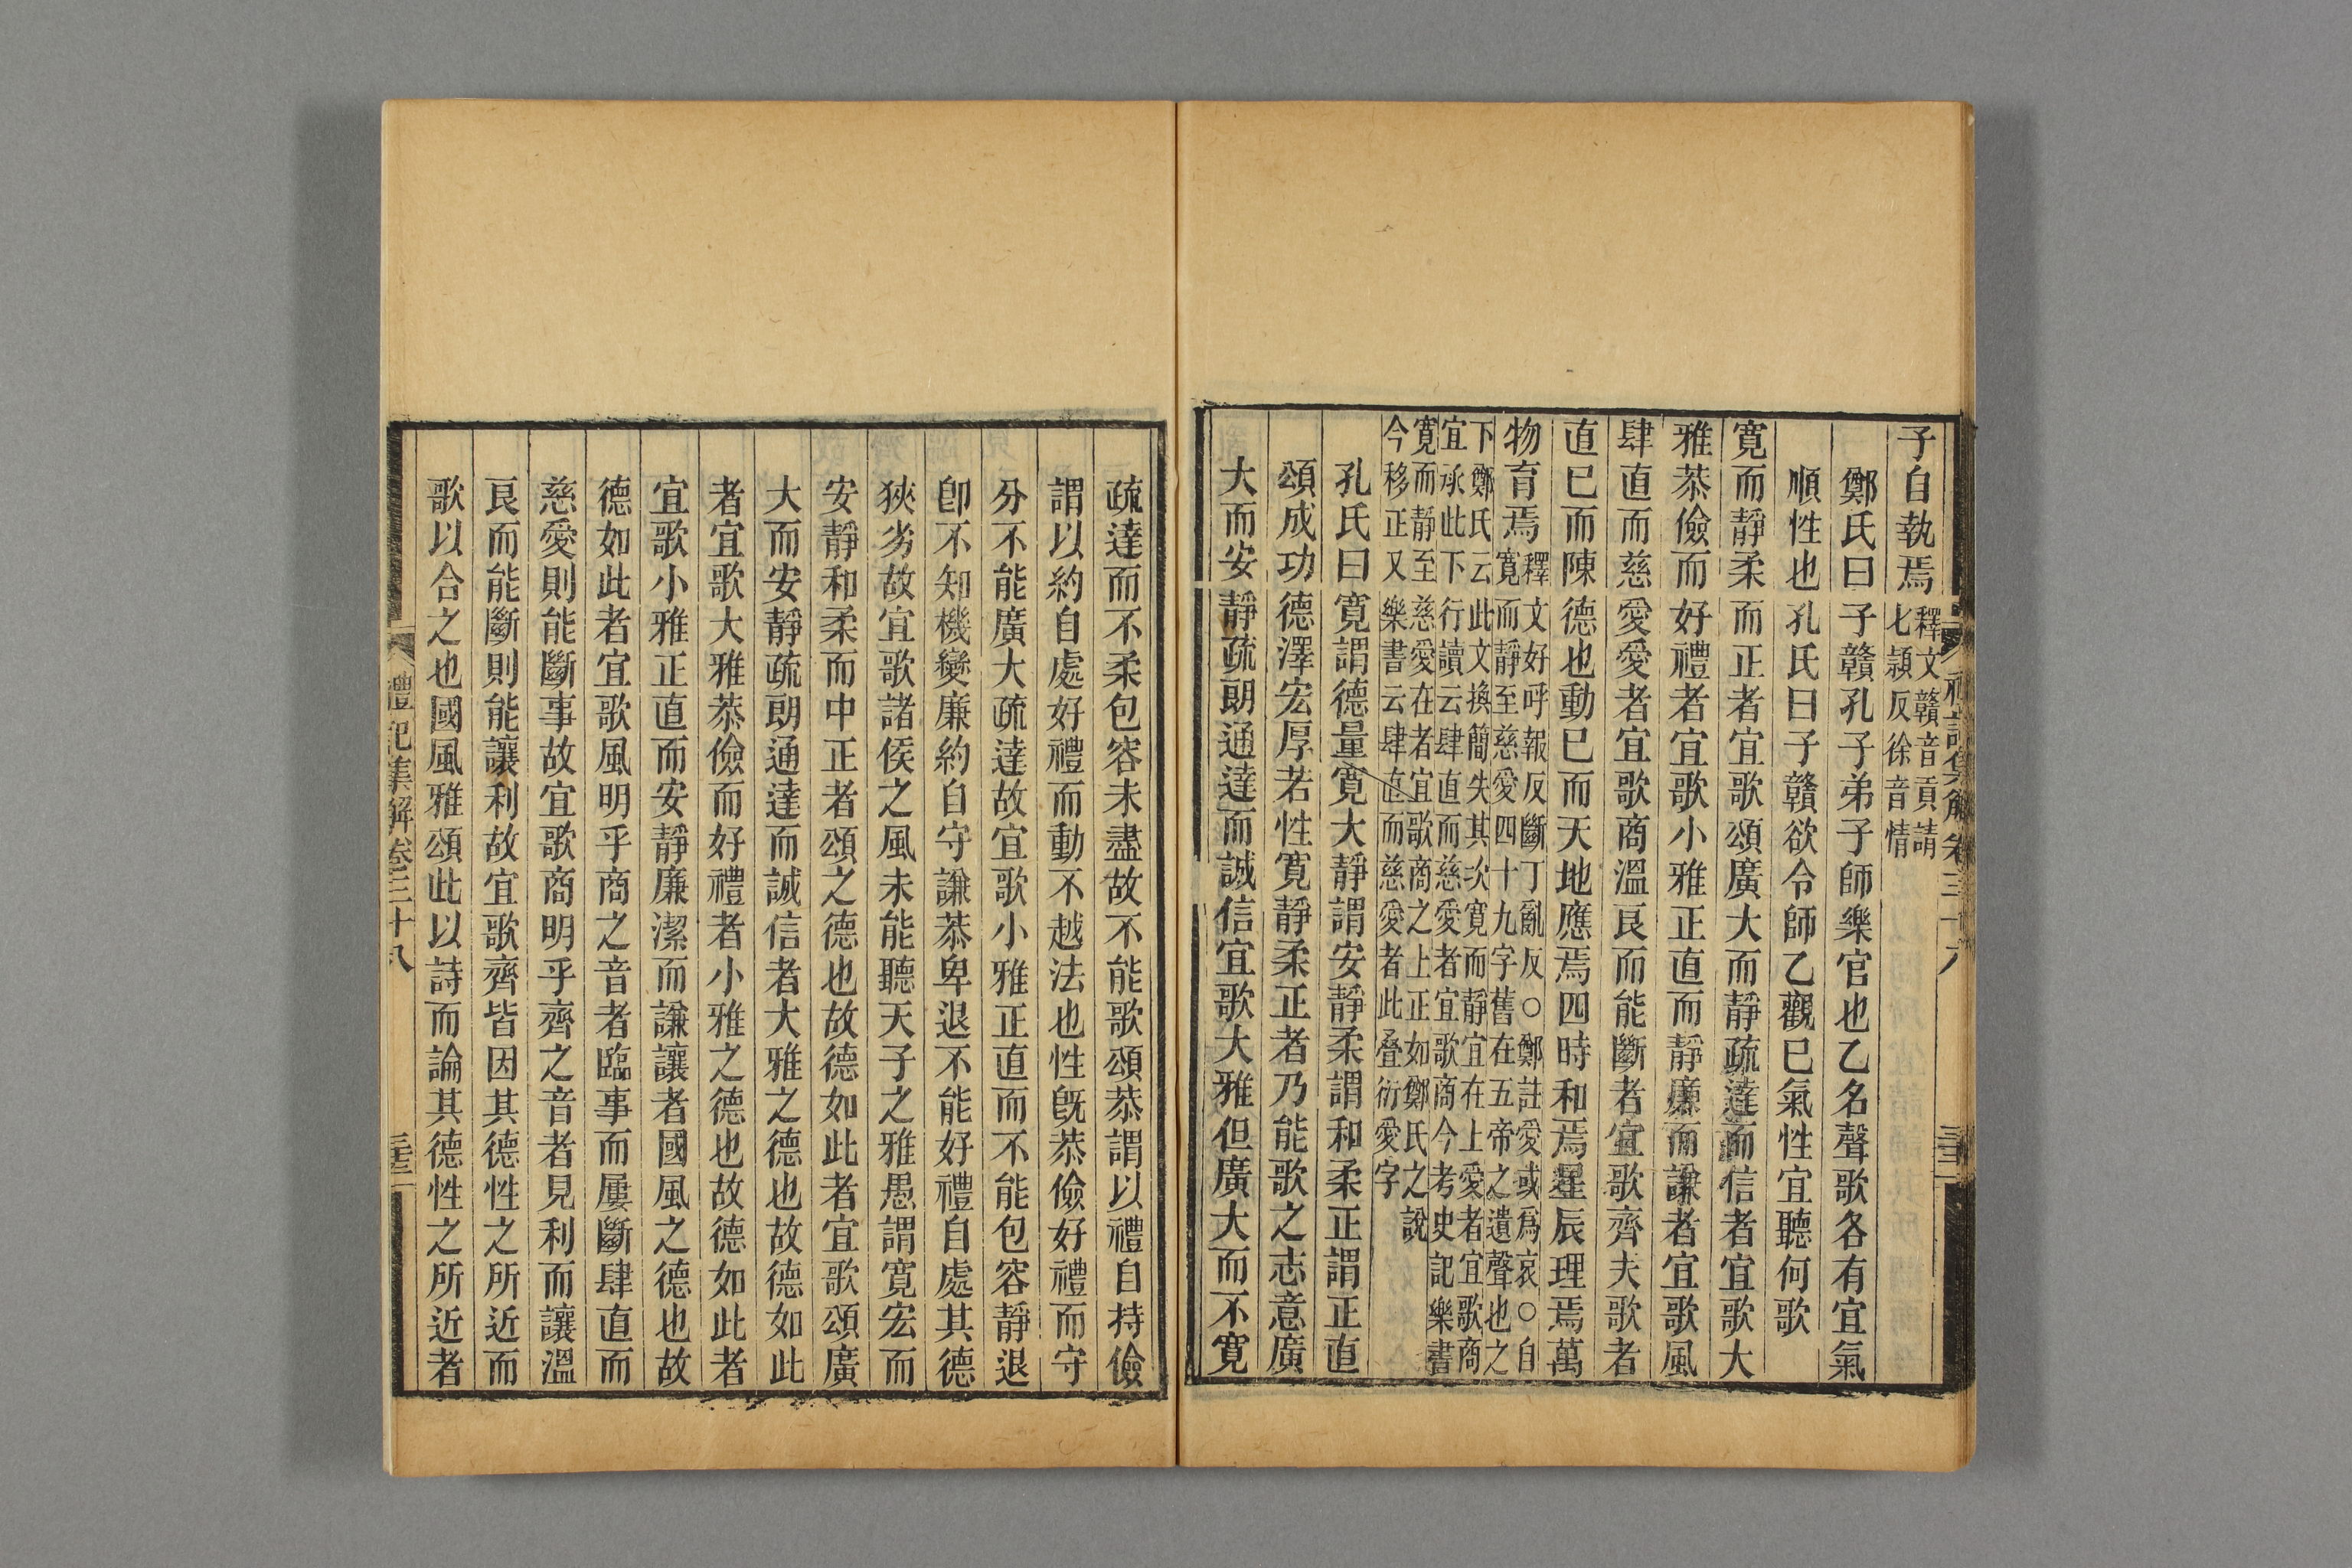 子自執焉釋文贛音貢請
七潁反徐音情
鄭氏曰子贛孔子弟子師樂官也乙名聲歌各有宜氣
順性也孔氏曰子贛欲令師乙觀已氣性宜聽何歌
寬而靜柔而正者宜歌頌廣大而靜疏達而信者宜歌大
雅恭儉而好禮者宜歌小雅正直而靜廉而謙者宜歌風
肆直而慈愛愛者宜歌商溫良而能斷者宜歌齊夫歌者
直已而陳德也動已而天地應焉四時和焉星辰理焉萬
物育焉釋文好呼報反斷丁亂反○鄭註愛或爲哀○自
寬而靜至慈愛四十九字舊在五帝之遺聲也之
下鄭氏云此文換簡失其次寬而靜宜在上愛者宜歌商
宜承此下行讀云肆直而慈愛者宜歌商今考史記樂書
寬而靜至慈愛在者宜歌商之上正如鄭氏之說
今移正又樂書云肆直而慈愛者此叠衍愛字
孔氏曰寬謂德量寬大靜謂安靜柔謂和柔正謂正直
頌成功德澤宏厚若性寬靜柔正者乃能歌之志意廣
大而安靜疏朗通達而誠信宜歌大雅但廣大而不寬
疏達而不柔包容未盡故不能歌頌恭謂以禮自持儉
謂以約自處好禮而動不越法也性旣恭儉好禮而守
分不能廣大疏達故宜歌小雅正直而不能包容靜退
卽不知機變廉約自守謙恭卑退不能好禮自處其德
狹劣故宜歌諸侯之風未能聽天子之雅愚謂寬宏而
安靜和柔而中正者頌之德也故德如此者宜歌頌廣
大而安靜疏朗通達而誠信者大雅之德也故德如此
者宜歌大雅恭儉而好禮者小雅之德也故德如此者
宜歌小雅正直而安靜廉潔而謙讓者國風之德也故
德如此者宜歌風明乎商之音者臨事而屢斷肆直而
慈愛則能斷事故宜歌商明乎齊之音者見利而讓溫
良而能斷則能讓利故宜歌齊皆因其德性之所近而
歌以合之也國風雅頌此以詩而論其德性之所近者
禮記集解卷三十八